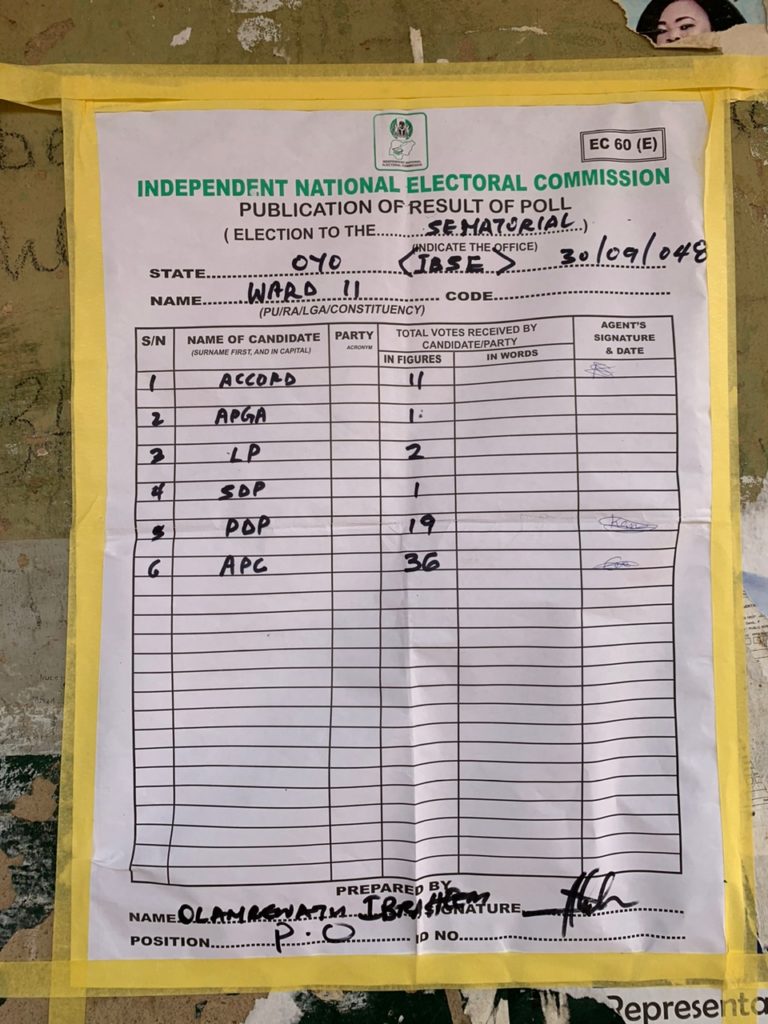 EC 60 (E)
INDEPENDENT NATIONAL ELECTORAL COMMISSION
PUBLICATION OF RESULT OF POLL
( ELECTION TO THE SEMATORIAL )
(INDICATE THE OFFICE)
STATE OYO <IBSE> 30/09/048
NAME WARD 11 CODE
(PU/RA/LGA/CONSTITUENCY)
S/N NAME OF CANDIDATE (SURNAME FIRST, AND IN CAPITAL) PARTY ACRONYM TOTAL VOTES RECEIVED BY CANDIDATE/PARTY IN FIGURES IN WORDS AGENT'S SIGNATURE & DATE
1 ACCORD 11
2 APGA 1
3 LP 2
4 SDP 1
5 PDP 19
6 APC 36
PREPARED BY
NAME IBRAHEEM SIGNATURE
POSITION P.O ID NO.
Representa